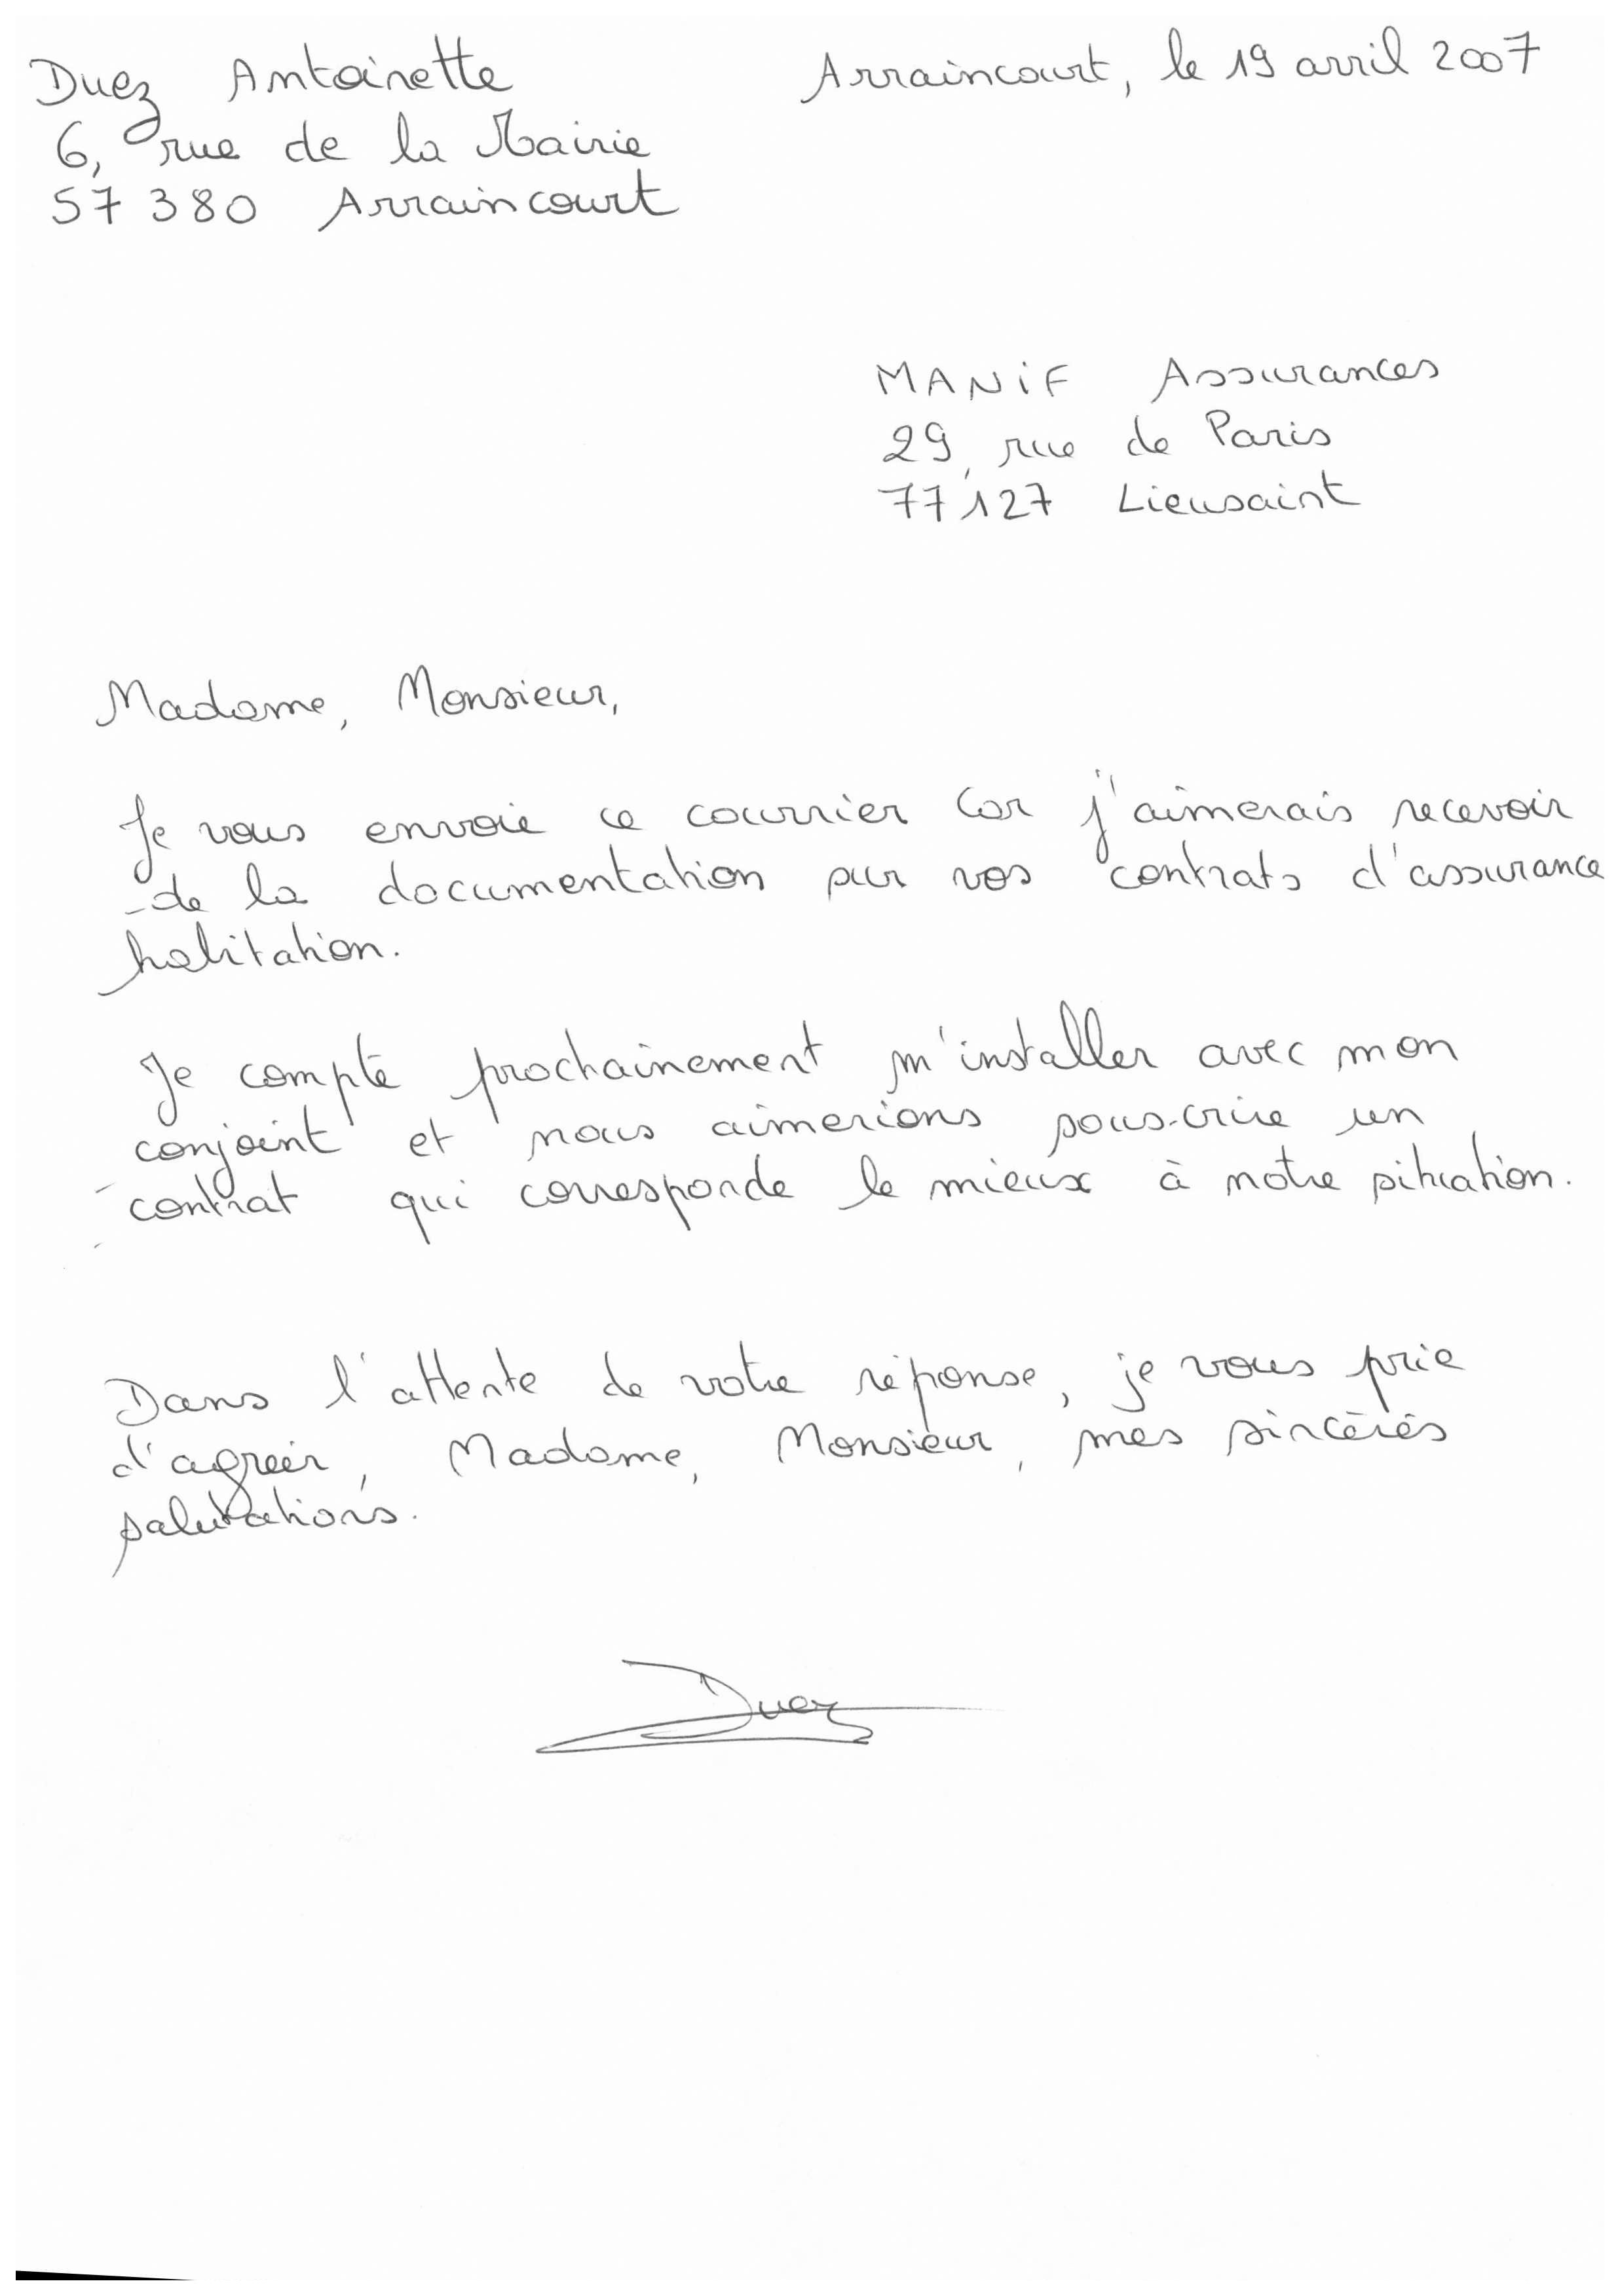 Duez Antoinette
6, rue de la Mairie
57 380 Arraincourt
Arraincourt, le 19 avril 2007
MANiF Assurances
29, rue de Paris
77 127 Lieusaint
Madame, Monsieur,
Je vous envoie ce courrier car j'aimerais recevoir
de la documentation sur vos contrats d'assurance
habitation.
Je compte prochainement m'installer avec mon
conjoint et nous aimerions souscrire un
contrat qui corresponde le mieux à notre situation.
Dans l'attente de votre réponse, je vous prie
d'agréer, Madame, Monsieur, mes sincères
salutations.
Duez